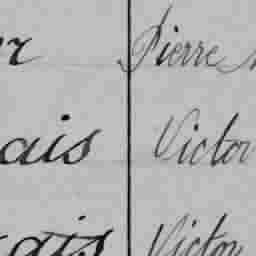 er Pierre
ais Victor
ais Victor